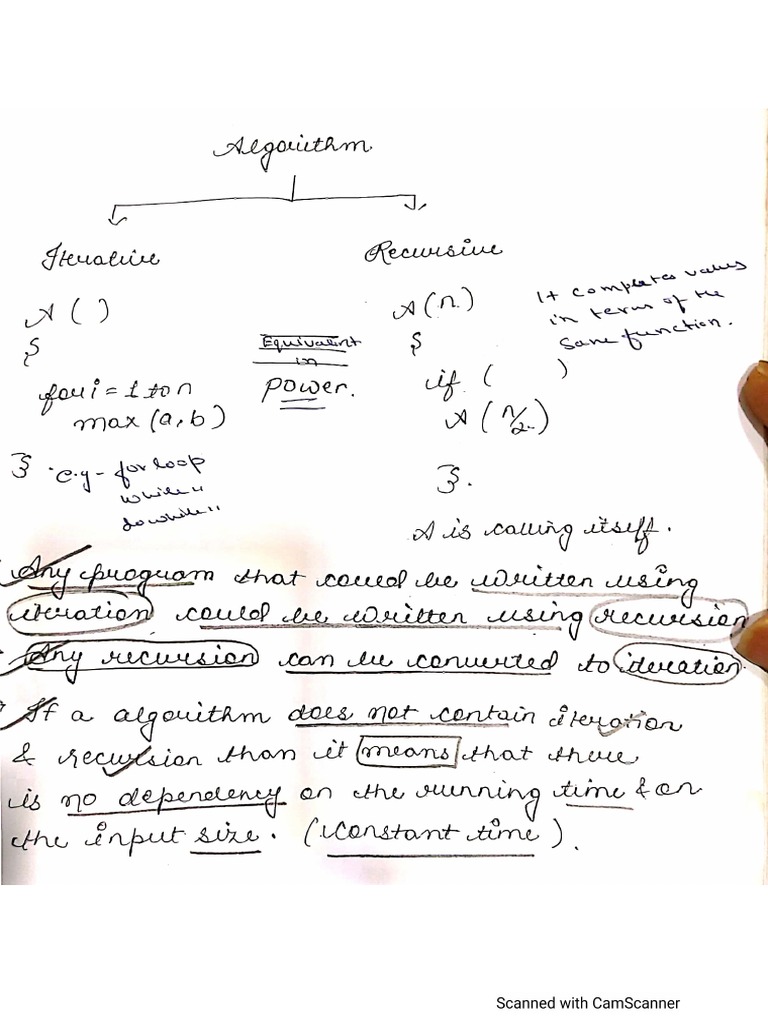 Algorithm
Iterative
Recursive
A ( )
{
for i = 1 to n
max (a, b)
}
e.g - for loop
while "
do while "
Equivalent
in
power.
A (n)
{
if ( )
A (n/2)
}.
It completes values
in term of the
same function.
A is calling itself.
Any program that could be written using
iteration could be written using recursion
Any recursion can be converted to iteration.
If a algorithm does not contain iteration
& recursion than it means that there
is no dependency on the running time & on
the input size. (Constant time).
Scanned with CamScanner